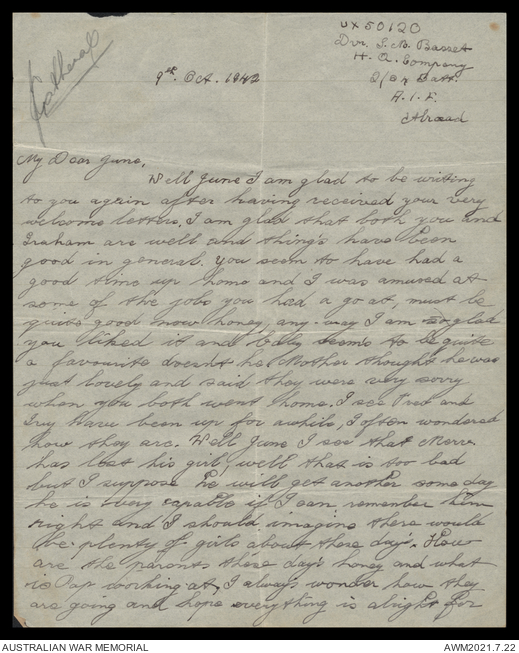 VX50120
Dvr. J. B. Basset
H. Q. Company
2/ Batt.
A. I. F.
Abroad
9th. Oct. 1942
My Dear June,
Well June I am glad to be writing
to you again after having received your very
welcome letters, I am glad that both you and
Graham are well and thing's have been
good in general. You seem to have had a
good time up home and I was amused at
some of the jobs you had a go at, must be
quite good now honey, any-way I am so glad
you liked it and seems to be quite
a favourite doesn't he Mother thought he was
just lovely and said they were very sorry
when you both went home. I see Fred and
have been up for awhile, I often wondered
how they are. Well June I see that Merv
has lost his girl, well that is too bad
but I suppose he will get another some day
he is very capable if I can remember him
right and I should imagine there would
be plenty of girls about these day's. How
are the parents these day's honey and what
is Pap working at, I always wonder how they
are going and hope everything is alright for
AUSTRALIAN WAR MEMORIAL
AWM2021.7.22